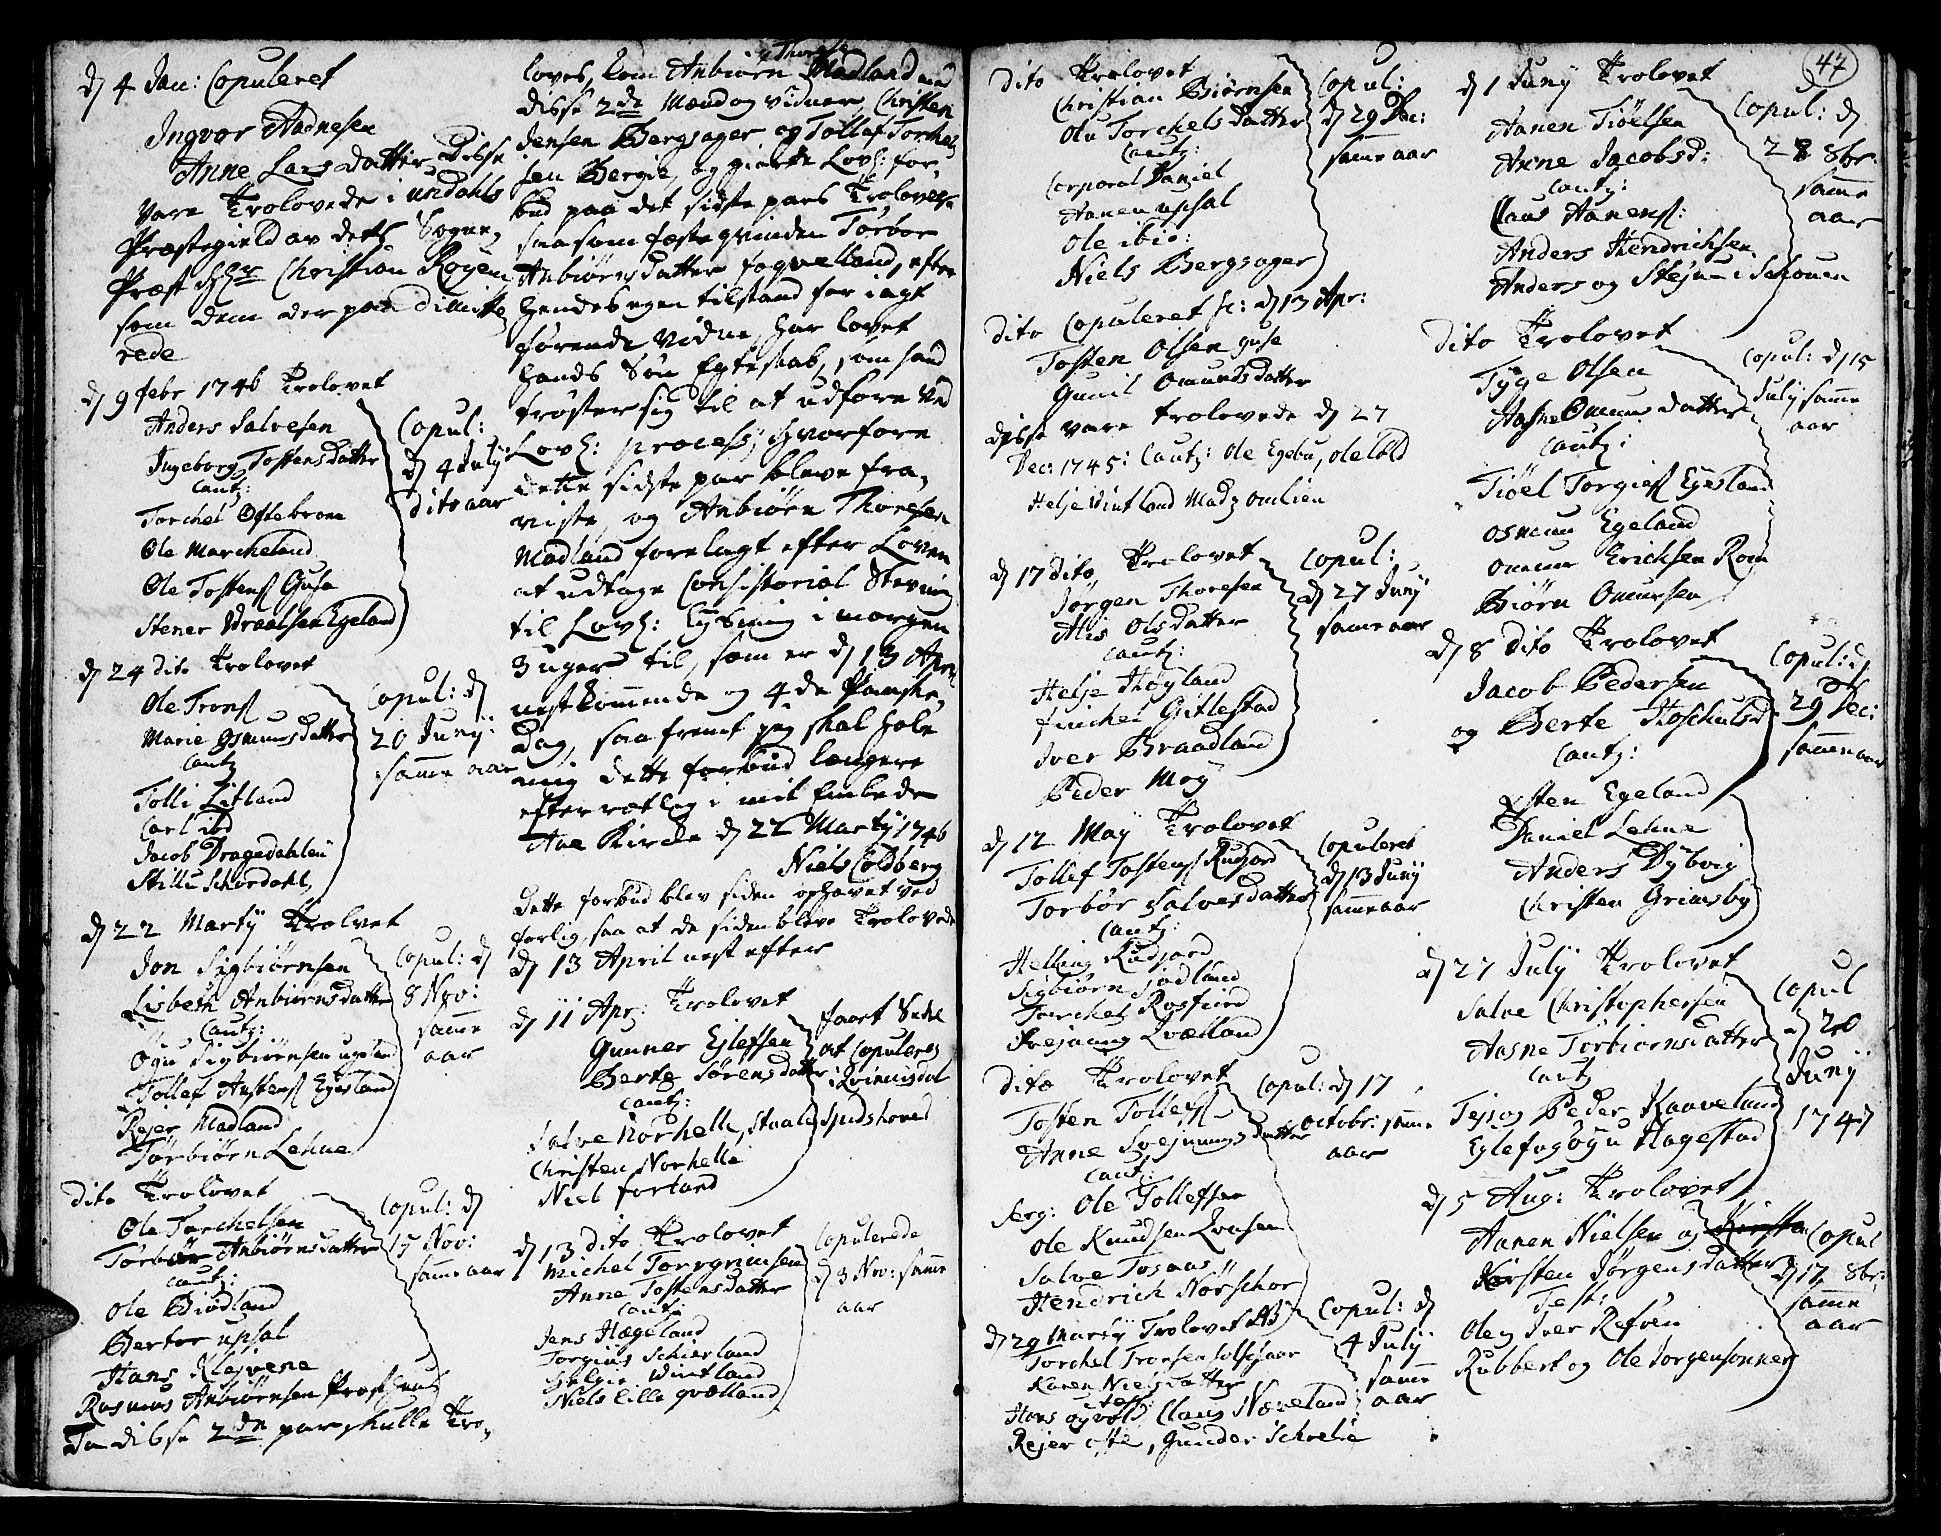 d 4 Jan: Copuleret
Ingvor Aadnesen
Anne Larsdatter Disse
vare Trolovede i undahls
Præstegield av dets Sogne
Præst Hr Christian Rogen
som dem der paa
rede
d 9 Febr 1746 Trolovet
Anders Salvesen
Ingeborg Tostensdatter
Cauti:
Torchel Ostebroen
Ole Marcheland
Ole Tostens Guse
Stener Egeland
Copul:
d 4 July
dito aar
d 24 dito Trolovet
Ole Trons
Marie Osmunsdatter
Cauti
Tolli Litland
Carl ibd
Jacob Dragedahlen
Stille Schordahl
Copul: d
20 Junij
samme aar
d 22 Martij Trolvet
Jon Sigbiørnsen
Lisbeth Anbiørnsdatter
Cauti:
Ogu Sigbiørnsen upsland
Tollef Austens Egesland
Rejer Madland
Tørbiørn Lehne
Copul: d
8 Nov:
samme
aar
dito Trolovet
Ole Torchelsen
Torbiør Anbiørnsdatter
Cauti:
Ole Biødland
Berter upsal
Hans Klejvene
Rasmus Anbiørnsen
Da disse 2de par skulle Tro,
Copul: d
15 Nov:
samme aar
Thorsen
loves, kom Anbiørn Madland med
disse 2de Mænd og vidner, Christen
Jensen Bergsager og Tollef Torchel,
sen Bergie, og giorde Lovl: for,
bud paa det sidste pars Trolovelse
saasom festeqvinden Torbor
Anbiørnsdatter Foqvelland, efter
hendes egen tilstand for iagt
førende vidne, har lovet
hands Søn Egteskab, som hand
trøster sig til at udføre ved
Lovl: process; hvorfore
dette sidste par bleve fra,
viste, og Anbiørn Thorsen
Madland forelagt efter Loven
at udtage Consistorial Stevning
til Lovl: Lysning i morgen
3 uger til, som er d 13 April
nestkommende og 4de Paaske,
dag, saafremt jeg skal holde
mig dette forbud længere
efterretlig i mit Embede
Aae Kirke d 22 Martij 1746
Niels Coldberg
Dette forbud blev siden ophævet ved
forlig, saa at de siden bleve Trolovede
d 13 April nest efter
d 11 Apr: Trolovet
Gunner Ejlefsen
Berte Sørensdatter
Cauti:
Salve Norhelle, Staale Spidshoved
Christen Norhelle
Niel forland
faaet Sedel
at Copuleres
i Qvinnisdal
d 13 dito Trolovet
Michel Torgrimsen
Anne Tostensdatter
Cauti
Jens Hægeland
Torgius Schierland
Helgie Vintland
Niels lille qvælland
Copulerede
d 3 Nov: samme
aar
47
Dito Trolovet
Christian Biørnsen
Ola Torchelsdatter
Cauti:
Corporal Daniel
Aanen upsal
Ole ibid:
Niels Bergsager
Copul:
d 29 Dec:
samme aar
dito Copuleret sc: d 13 Apr:
Tosten Olsen guse
Gunil Omundsdatter
disse vare trolovede d 27
Dec: 1745: Cauti: Ole Egebu, Ole ibid
Helje Vintland Mads omlien
d 17 dito Trolovet
Jørgen Thoresen
Alis Olsdatter
Cauti:
Helje Høyland
Finchel Gitlestad
Iver Braadland
Peder Moy
Copul:
d 27 Junij
samme aar
d 12 Maij Trolovet
Tollef Tostens Rudjord
Torbør Salvesdatter
Cauti:
Helling Rudjord
Sigbiørn Sjødland
Torchel Rosfiord
Svejnung Qvælland
Copuleret
d 13 Junij
samme aar
Dito Trolovet
Tosten Tollefs
Anne Svejnungsdatter
Cauti:
Serg: Ole Tollefsen
Ole Knudsen
Salve Tosaas
Hendrich Nørschor
Copul: d 17
Octobr: samme
aar
d 29 Martij Trolovet
Torchel Tronsen
Karen Nielsdatter
test:
Hans ogvold Claus Næveland
Rejer oftte, Gunder Schoelie
Copul: d
4 Julij
samme
aar
d 1 Junij Trolovet
Aanen Tiøelsen
Anne Jacobsd:
Cauti:
Claus Aanens:
Anders Hendrichsen
Anders og Stejn i Schouen
Copul: d
28 8br:
samme
aar
Dito Trolovet
Tyge Olsen
Aasne Omunsdatter
Cauti:
Tiøel Torgies Egesland
Osmun Egeland
Omun Erichsen Rom
Biørn Omunsen
Copul: d 15
July samme
aar
d 8 dito Trolovet
Jacob Pedersen
og Berte Roschulsd:
Cauti:
Østen Egeland
Daniel Lehne
Anders Dybvig
Christen Grimsby
Copul: d
29 Dec:
samme aar
d 27 July Trolovet
Salve Christophersen
Aasne Torbiornsdatter
Cauti
Tejs og Peder Kaaveland
Eglef og Ogu Hagestad
Copul
d 20
Junij
1747
d 5 Aug: Trolovet
Aanen Nielsen og
Kirsten Jørgensdatter
Test:
Ole og Iver Refven
Rubbert og Ole Jorgensønner
Copul
d 17 8br:
samme
aar